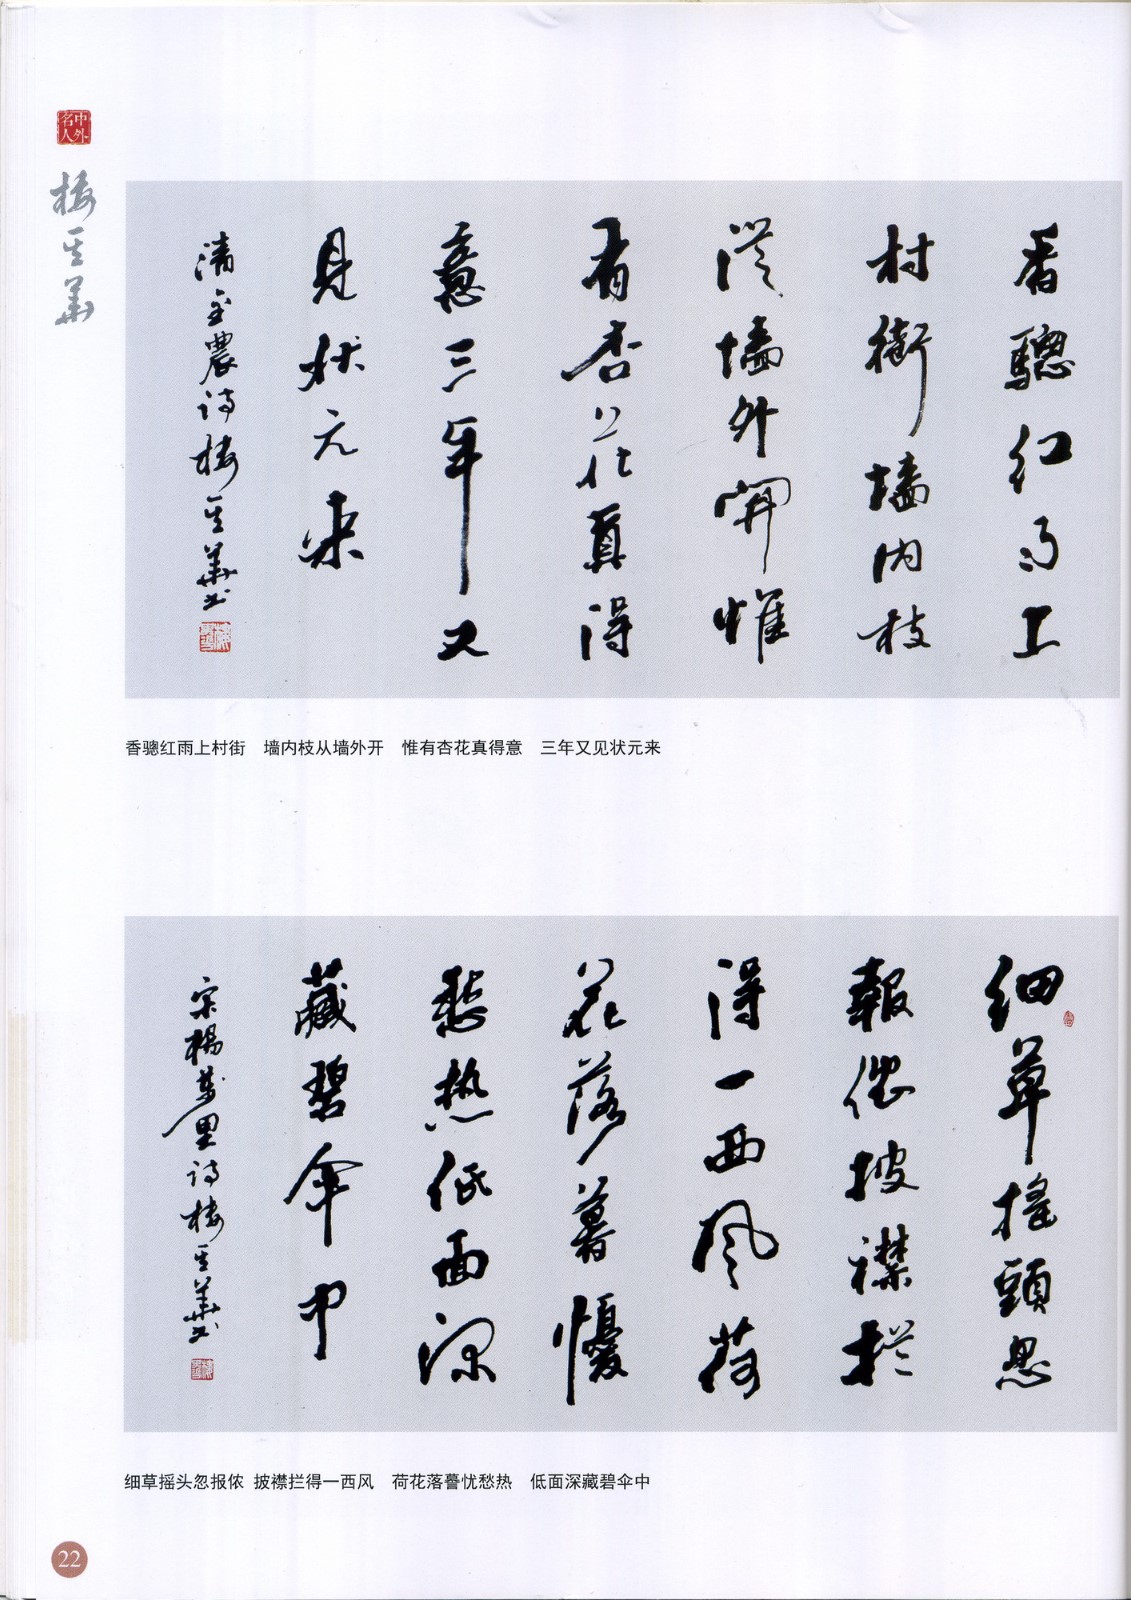 中外
名人
楼其華
香驄红雨上
村街墙内枝
從墙外開惟
有杏花真得
意三年又
見状元来
清金農诗楼其華书
香骢红雨上村街 墙内枝从墙外开 惟有杏花真得意 三年又见状元来
细草摇頭忽
報侬披襟拦
得一西风荷
花落暮懮
愁热低面深
藏碧伞中
宋楊萬里诗楼其華书
细草摇头忽报侬 披襟拦得一西风 荷花落謩忧愁热 低面深藏碧伞中
22